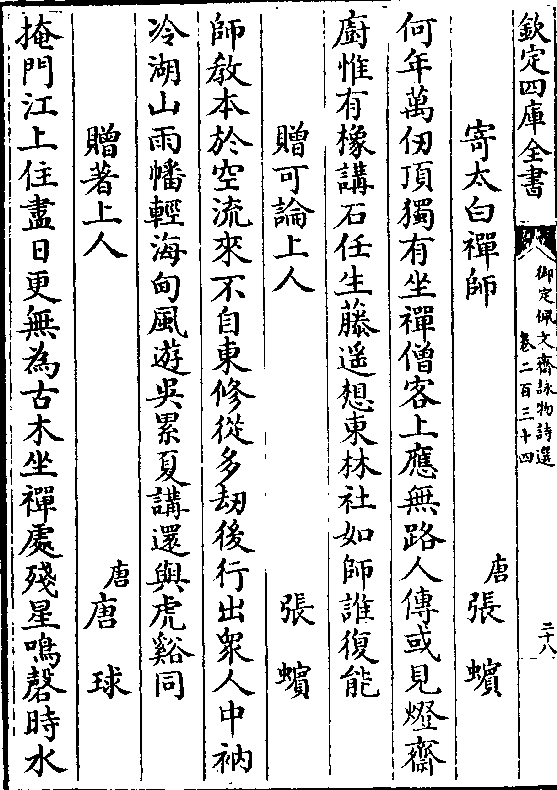 欽定四庫全書
御定佩文齋詠物詩選
卷二百三十四
二十八
寄太白禪師
唐張蠙
何年萬仞頂獨有坐禪僧客上應無路人傳或見燈齋
廚惟有橡講石任生藤遥想東林社如師誰復能
贈可論上人
張蠙
師教本於空流來不自東修從多劫後行出衆人中衲
冷湖山雨幡輕海甸風遊吳累夏講還與虎谿同
贈著上人
唐唐球
掩門江上住盡日更無為古木坐禪處殘星鳴磬時水